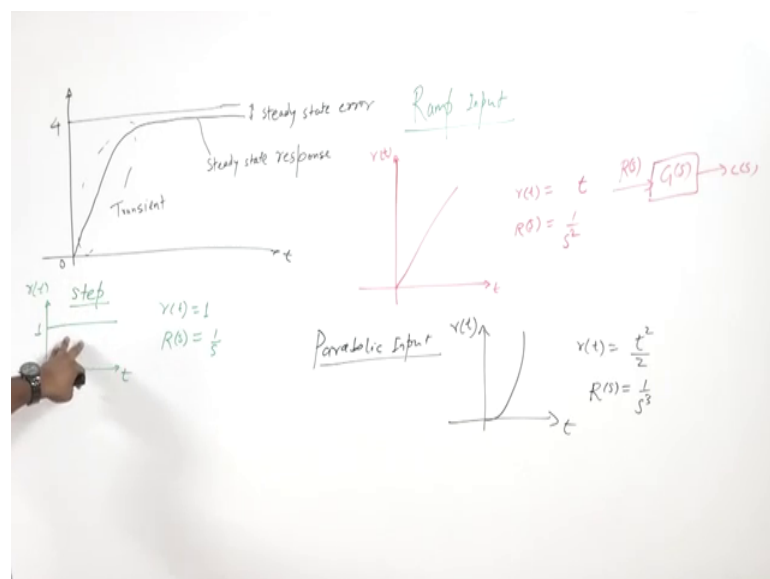 4
steady state error
steady state response
Transient
0
t
Ramp Input
r(t)
t
r(t) = t
R(s) = 1/s²
R(s) G(s) C(s)
r(t)
step
1
t
r(t) = 1
R(s) = 1/s
Parabolic Input
r(t)
t
r(t) = t²/2
R(s) = 1/s³